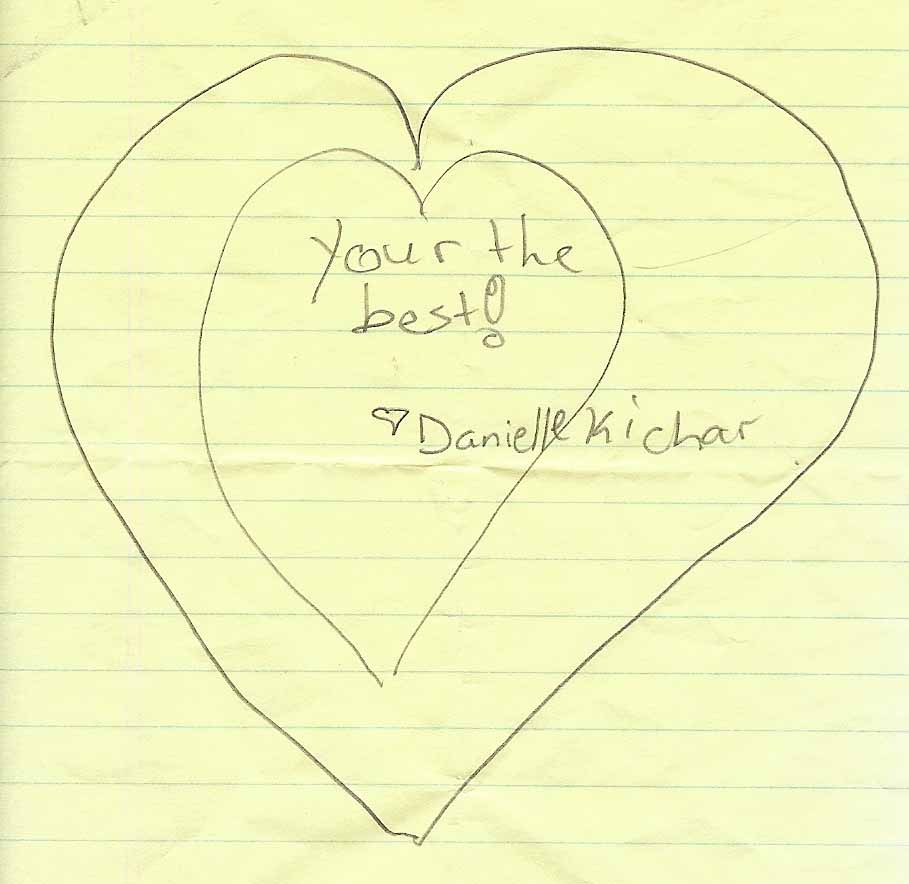 your the
best!
♡Danielle Kichar